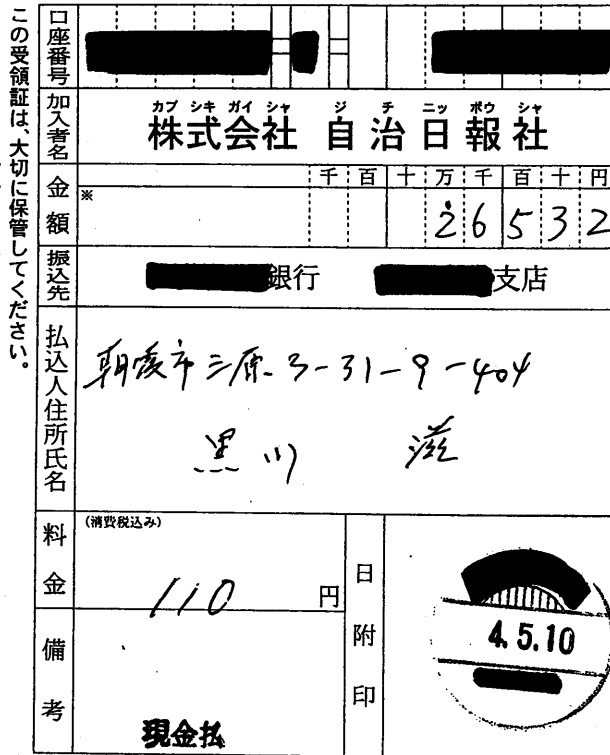 この受領証は、大切に保管してください。
口座番号
加入者名
カブ シキ ガイ シャ ジ チ ニッ ポウ シャ
株式会社 自治日報社
金額
千 百 十 万 千 百 十 円
※
26532
振込先
銀行 支店
払込人住所氏名
朝霞市三原-3-31-9-404
黒川 滋
料金
(消費税込み)
110 円
備考
現金払
日附印
4.5.10